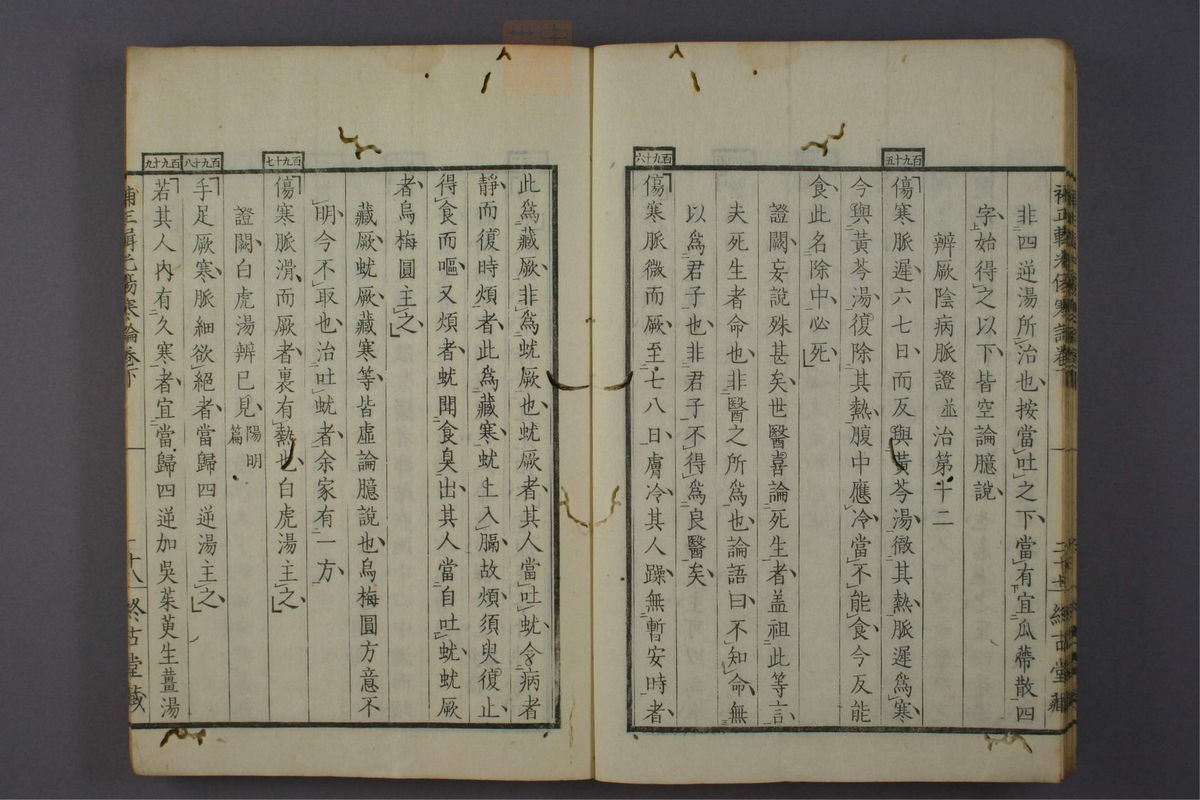 非四逆湯所治也按當吐之下當有宜瓜蒂散四
字始得之以下皆空論臆說
辨厥陰病脈證並治第十二
百九十五
傷寒脈遲六七日而反與黃芩湯徹其熱脈遲爲寒
今與黃芩湯復除其熱腹中應冷當不能食今反能
食此名除中必死
證闕妄說殊甚矣世醫喜論死生者盖祖此等言
夫死生者命也非醫之所爲也論語曰不知命無
以爲君子也非君子不得爲良醫矣
百九十六
傷寒脈微而厥至七八日膚冷其人躁無暫安時者
此爲藏厥非爲蚘厥也蚘厥者其人當吐蚘令病者
靜而復時煩者此爲藏寒蚘上入膈故煩須臾復止
得食而嘔又煩者蚘聞食臭出其人當自吐蚘蚘厥
者烏梅圓主之
藏厥蚘厥藏寒等皆虛論臆說也烏梅圓方意不
明今不取也治吐蚘者余家有一方
百九十七
傷寒脈滑而厥者裏有熱也白虎湯主之
證闕白虎湯辨已見陽明篇
百九十八
手足厥寒脈細欲絕者當歸四逆湯主之
百九十九
若其人內有久寒者宜當歸四逆加吳茱萸生薑湯
傷寒論卷下
十八
終古堂藏